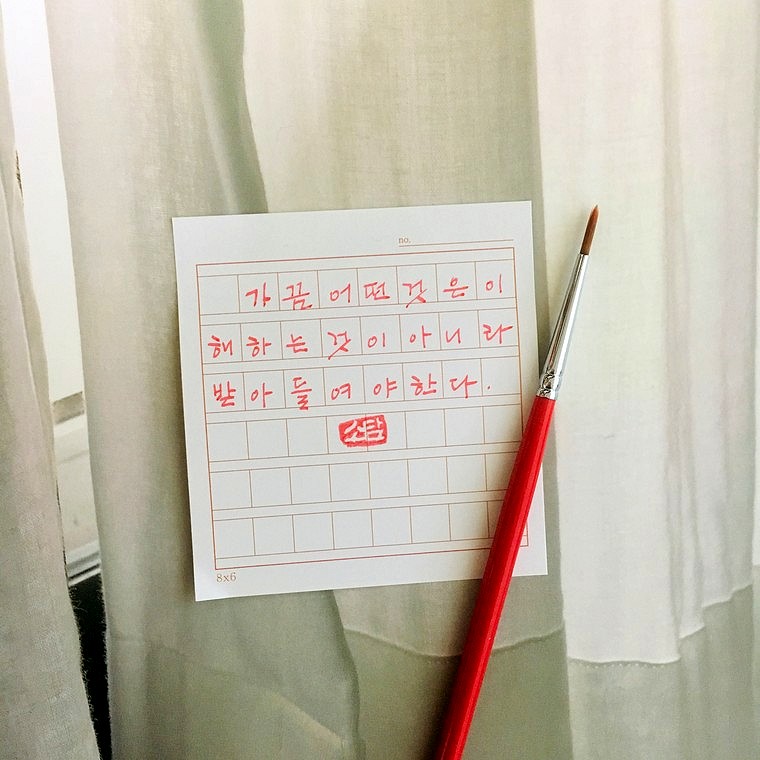 no.
가끔 어떤 것은 이
해하는 것이 아니라
받아들여야 한다.
소담
8x6